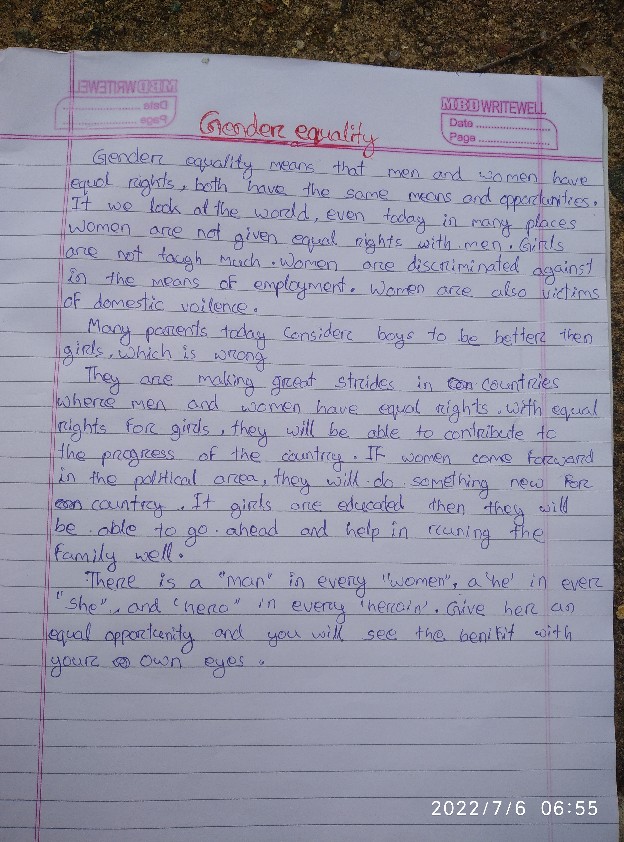 MBD WRITEWELL
Date
Page
Gender equality
Gender equality means that men and women have
equal rights, both have the same means and opportunities.
If we look at the world, even today in many places
women are not given equal rights with men. Girls
are not taugh much. Women are discriminated against
in the means of employment. Women are also victims
of domestic voilence.
Many parents today consider boys to be better then
girls, which is wrong
They are making great strides in countries
where men and women have equal rights. with equal
rights for girls, they will be able to contribute to
the progress of the country. If women come forward
in the political area, they will do something new for
country. If girls are educated then they will
be able to go ahead and help in runing the
family well.
There is a "man" in every "women", a 'he' in ever
"she", and 'hero" in every 'heroin'. Give her an
equal opportunity and you will see the benifit with
your own eyes.
2022/7/6 06:55